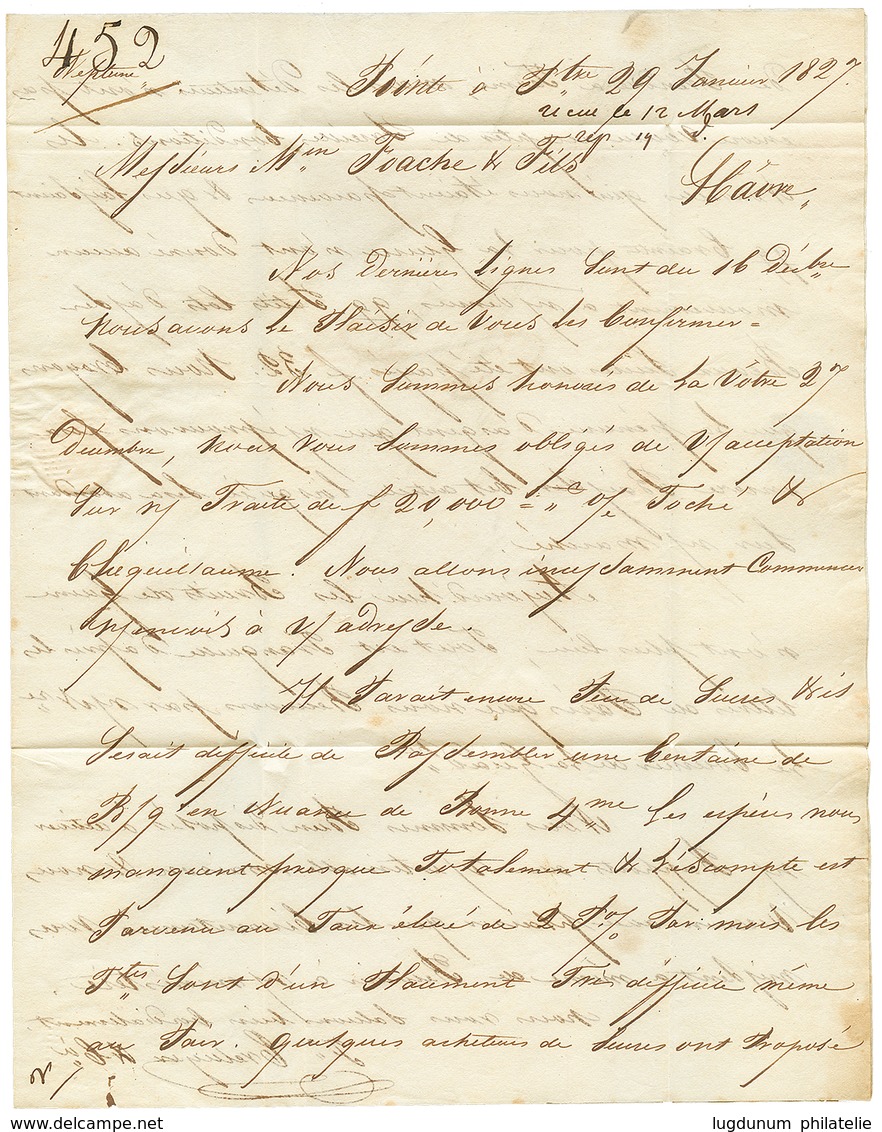 452
Neptune
Pointe à Ptre 29 Janvier 1827.
recue le 12 Mars
rep. 14 d.
Messieurs Min Foache & Fils
Hâvre
Nos Dernières lignes sont du 16 décbre
nous avons le Plaisir de Vous les Confirmer =
Nous Sommes honorés de la Vôtre 27
Décembre, nous vous Sommes obligés de V/acceptation
Sur n/ Traite de f 20,000 = " o/ Toché &
Cheguillaume. Nous allons incessamment Commencer
n/ envois à V/ adresse.
Il Parait encore Peu de Sucres & il
Serait difficile de Rassembler une Centaine de
B/q en Nuance de Bonne 4me les espèces nous
manquent presque Totalement & l'éscompte est
Parvenu au Taux élevé de 2 P% Par mois les
Ttes Sont d'un Placement Très difficile même
au Pair. quelques acheteurs de Sucres ont Proposé
www.delcampe.net
lugdunum philatelie